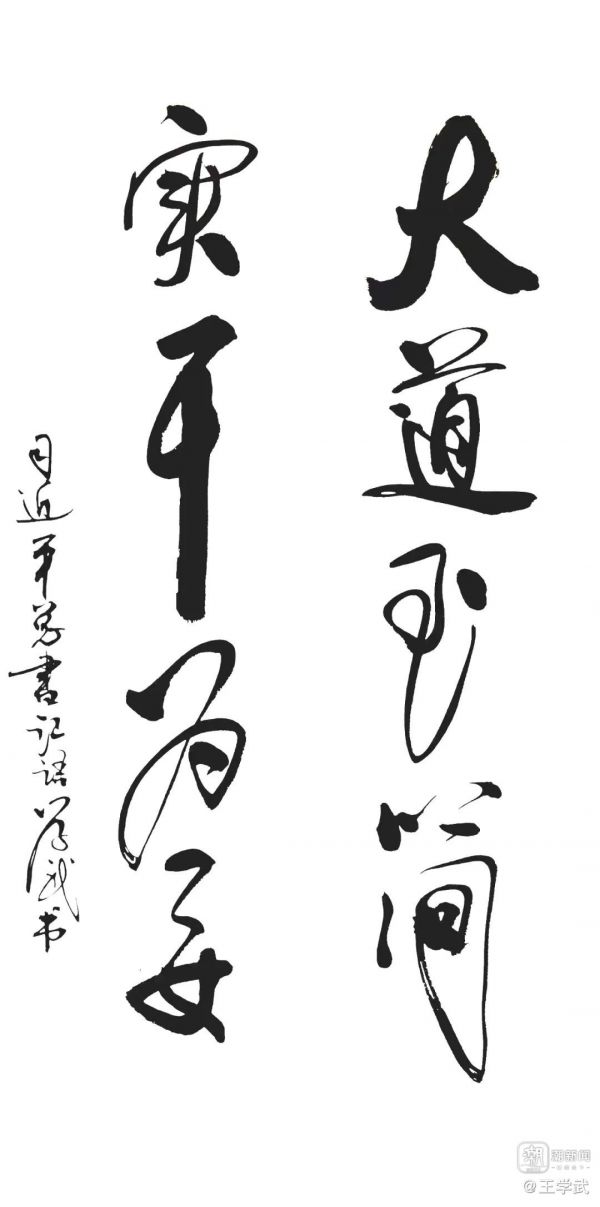 大道至简
实干为要
习近平总书记语 学武书
潮新闻
@王学武